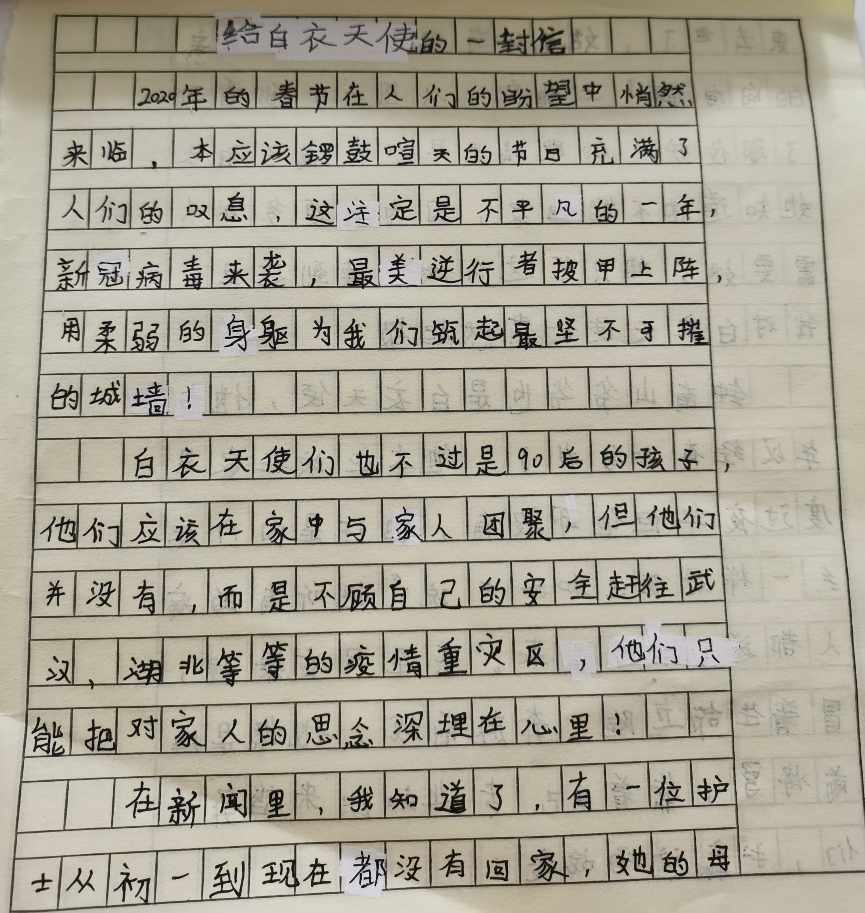 给白衣天使的一封信
2020年的春节在人们的盼望中悄然
来临，本应该锣鼓喧天的节日充满了
人们的叹息，这注定是不平凡的一年，
新冠病毒来袭，最美逆行者披甲上阵，
用柔弱的身躯为我们筑起最坚不可摧
的城墙！
白衣天使们也不过是90后的孩子，
他们应该在家中与家人团聚，但他们
并没有，而是不顾自己的安全赶往武
汉，湖北等等的疫情重灾区，他们只
能把对家人的思念深埋在心里！
在新闻里，我知道了，有一位护
士从初一到现在都没有回家，她的母